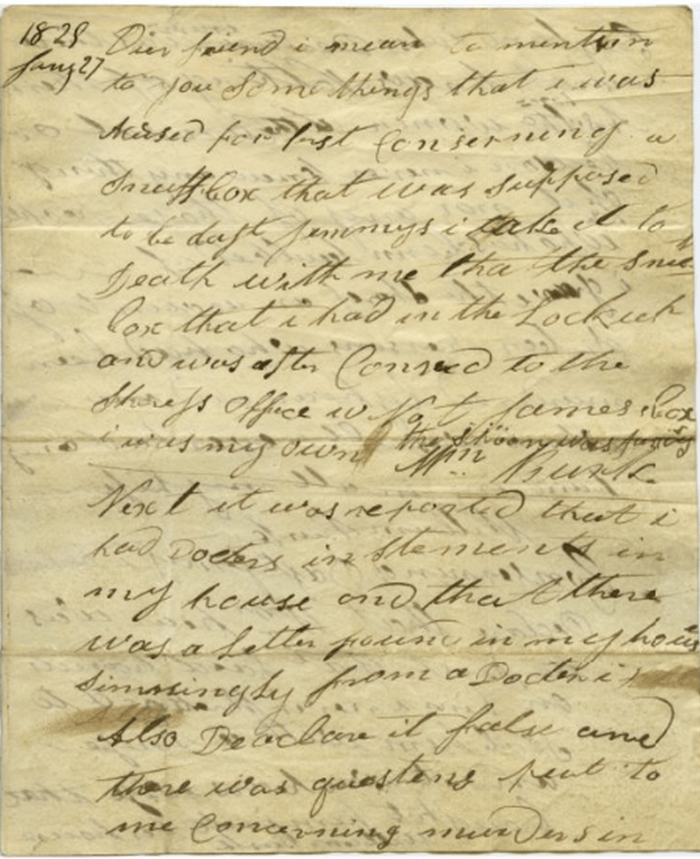 1829
Jany 27
Dier friend i mean to mention
to you Somethings that i was
Acused for first Conserning a
Snuffbox that was supposed
to be daft Jemmys i take it to
Death with me tha the snu
box that i had in the Lockuh
and was after Conved to the
Shereffs Office w Not James Box
i was my own the spoon was
Wm Burk
Next it was reported that i
had Docters instements in
my house and that there
was a Letter found in my hous
simmingly from a Docter i
Also Dclare it false and
there was questens put to
me Concerning murders in